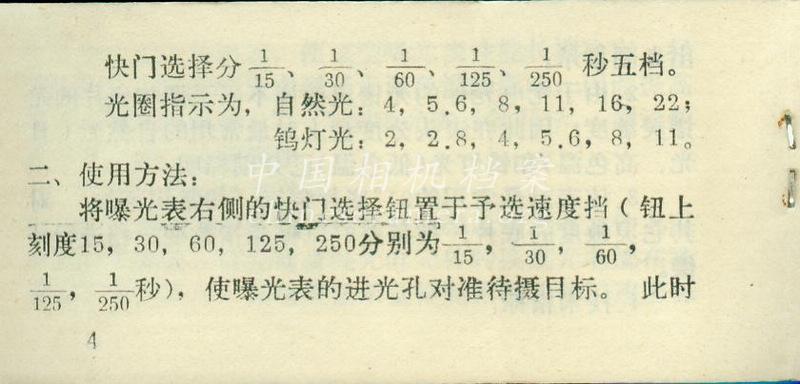 快门选择分 1/15、1/30、1/60、1/125、1/250 秒五档。
光圈指示为，自然光：4，5.6，8，11，16，22；
钨灯光：2，2.8，4，5.6，8，11。
中国相机档案
二、使用方法：
将曝光表右侧的快门选择钮置于予选速度挡（钮上
刻度15，30，60，125，250分别为 1/15，1/30，1/60，
1/125，1/250秒），使曝光表的进光孔对准待摄目标。 此时
4